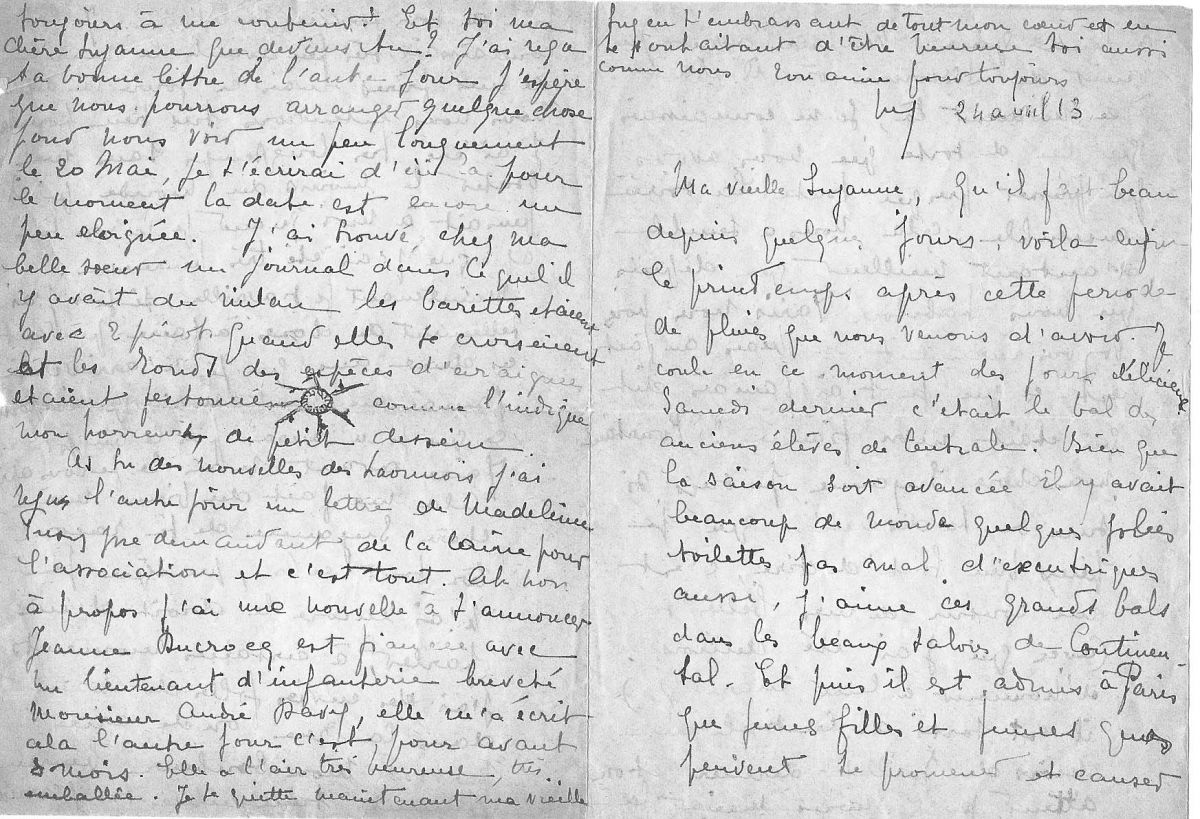 toujours à me soutenir! Et toi ma
chère Suzanne que deviens tu? J'ai reçu
ta bonne lettre de l'autre jour j'espère
que nous pourrons arranger quelque chose
pour nous voir un peu longuement
le 20 Mai, je t'écrirai d'ici là pour
le moment la date est encore un
peu eloignée. J'ai trouvé chez ma
belle sœur un journal dans lequel il
y avait du les barettes etaient
avec 2 picots quand elles se croisaient
et les ronds des espèces d'airaignées
etaient festonnés comme l'indique
mon horreur de petit dessin.
As tu des nouvelles des Laonnois j'ai
reçu l'autre jour un lettre de Madeleine
me demandant de la laine pour
l'association et c'est tout. Ah non
à propos j'ai une nouvelle à t'annoncer
Jeanne Ducrocq est fiancée avec
un lieutenant d'infanterie breveté
Monsieur André Davy, elle m'a écrit
cela l'autre jour c'est pour avant
3 mois. Elle a l'air très heureuse, très
emballée. Je te quitte maintenant ma vieille
en t'embrassant de tout mon cœur et en
te souhaitant d'être heureuse toi aussi
comme nous ton amie pour toujours
24 avril 13
Ma vieille Suzanne, Qu'il fait beau
depuis quelques jours, voilà enfin
le printemps apres cette periode
de pluies que nous venons d'avoir. Il
coule en ce moment des jours délicieux
Samedi dernier c'etait le bal des
anciens élèves de Centrale. Bien que
la saison soit avancée il y avait
beaucoup de monde quelques jolies
toilettes pas mal d'excentriques
aussi, j'aime ces grands bals
dans les beaux salons de Continen-
tal. Et puis il est admis à Paris
que jeunes filles et jeunes gens
peuvent se promener et causer